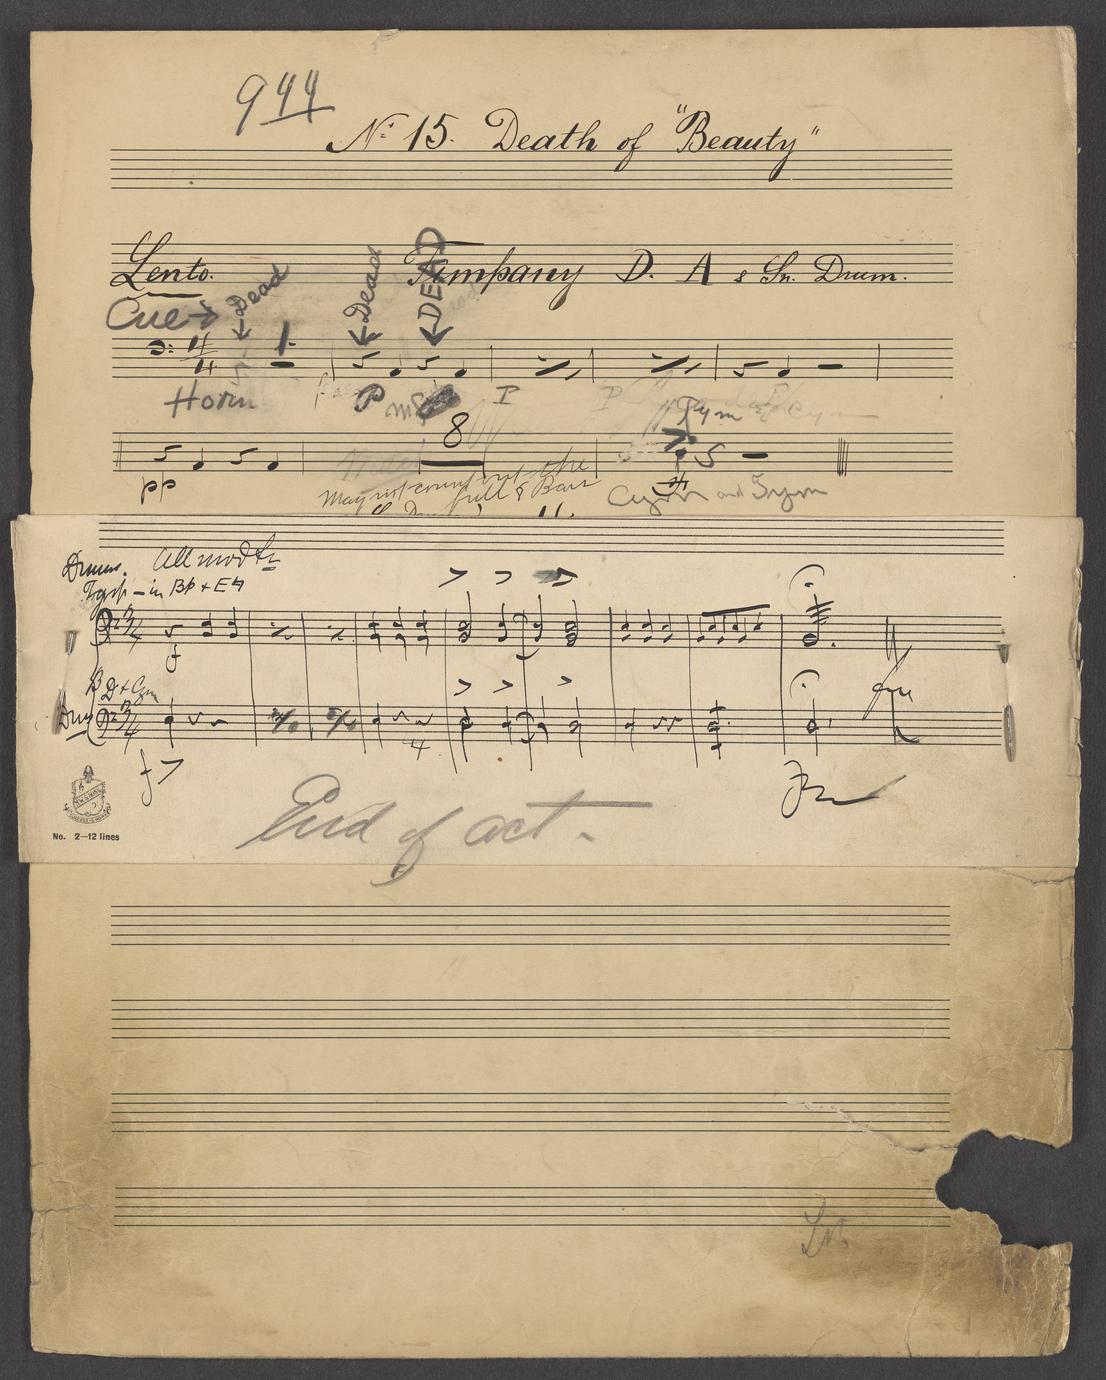 944
No 15. Death of "Beauty"
Lento. Tympany D. A & Sn. Drum.
Cue → Dead Dead DEAD
4/4 1
Horn P P
Tym
8
pp May not count out the
full 8 Bars Cym and Tym
Drums. All modto
in Bb + E♮
2 3/4
f
B D + Cym
Drums 2 3/4
4 fine
f
End of act.
No. 2—12 lines